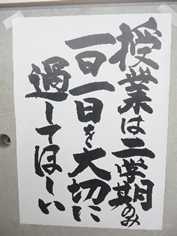 授業は二学期のみ
一日一日を大切に
過してほしい